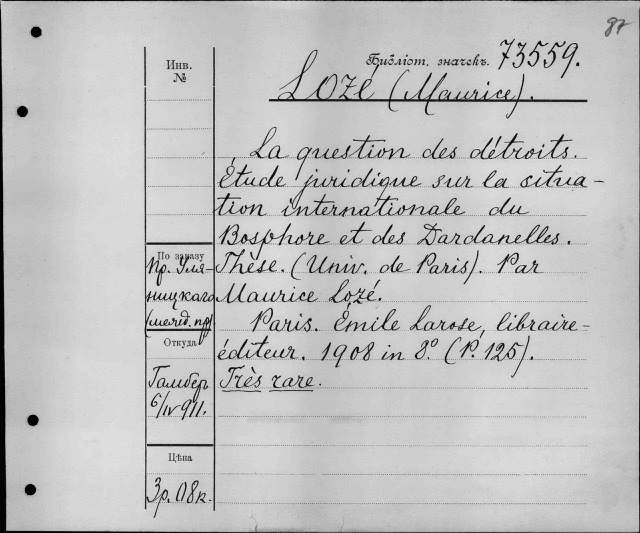 87
Библіот. значекъ. 73559.
Инв.
№
Lozé (Maurice).
La question des détroits.
Étude juridique sur la situa-
tion internationale du
Bosphore et des Dardanelles.
Thèse. (Univ. de Paris). Par
Maurice Lozé.
Paris. Émile Larose, libraire-
éditeur. 1908 in 8.° (P. 125).
Très rare.
По заказу
Пр. Уля-
ницкаго
(межд. пр)
Откуда
Гамберъ
6/IV 911.
Цѣна
3р. 08к.